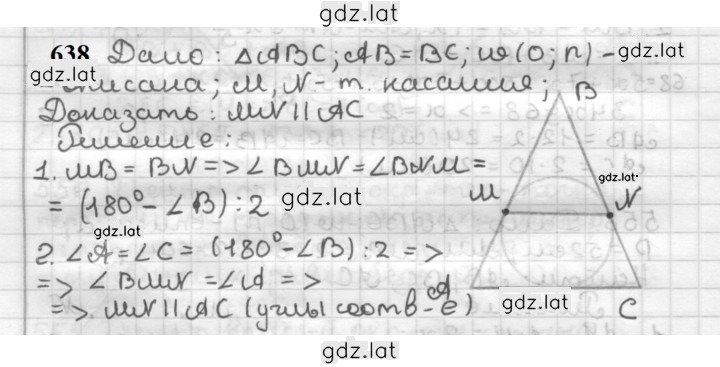 gdz.lat
638 Дано: △ABC; AB=BC; ω(O; r) - gdz.lat
gdz.lat вписана; M, N - т. касания; B
Доказать: MN || AC
Решение:
1. MB = BN => ∠BMN = ∠BNM = gdz.lat
= (180° - ∠B) : 2 gdz.lat M N
gdz.lat
2. ∠A = ∠C = (180° - ∠B) : 2 =>
=> ∠BMN = ∠A => A
=> MN || AC (углы соотв-е) gdz.lat C
gdz.lat